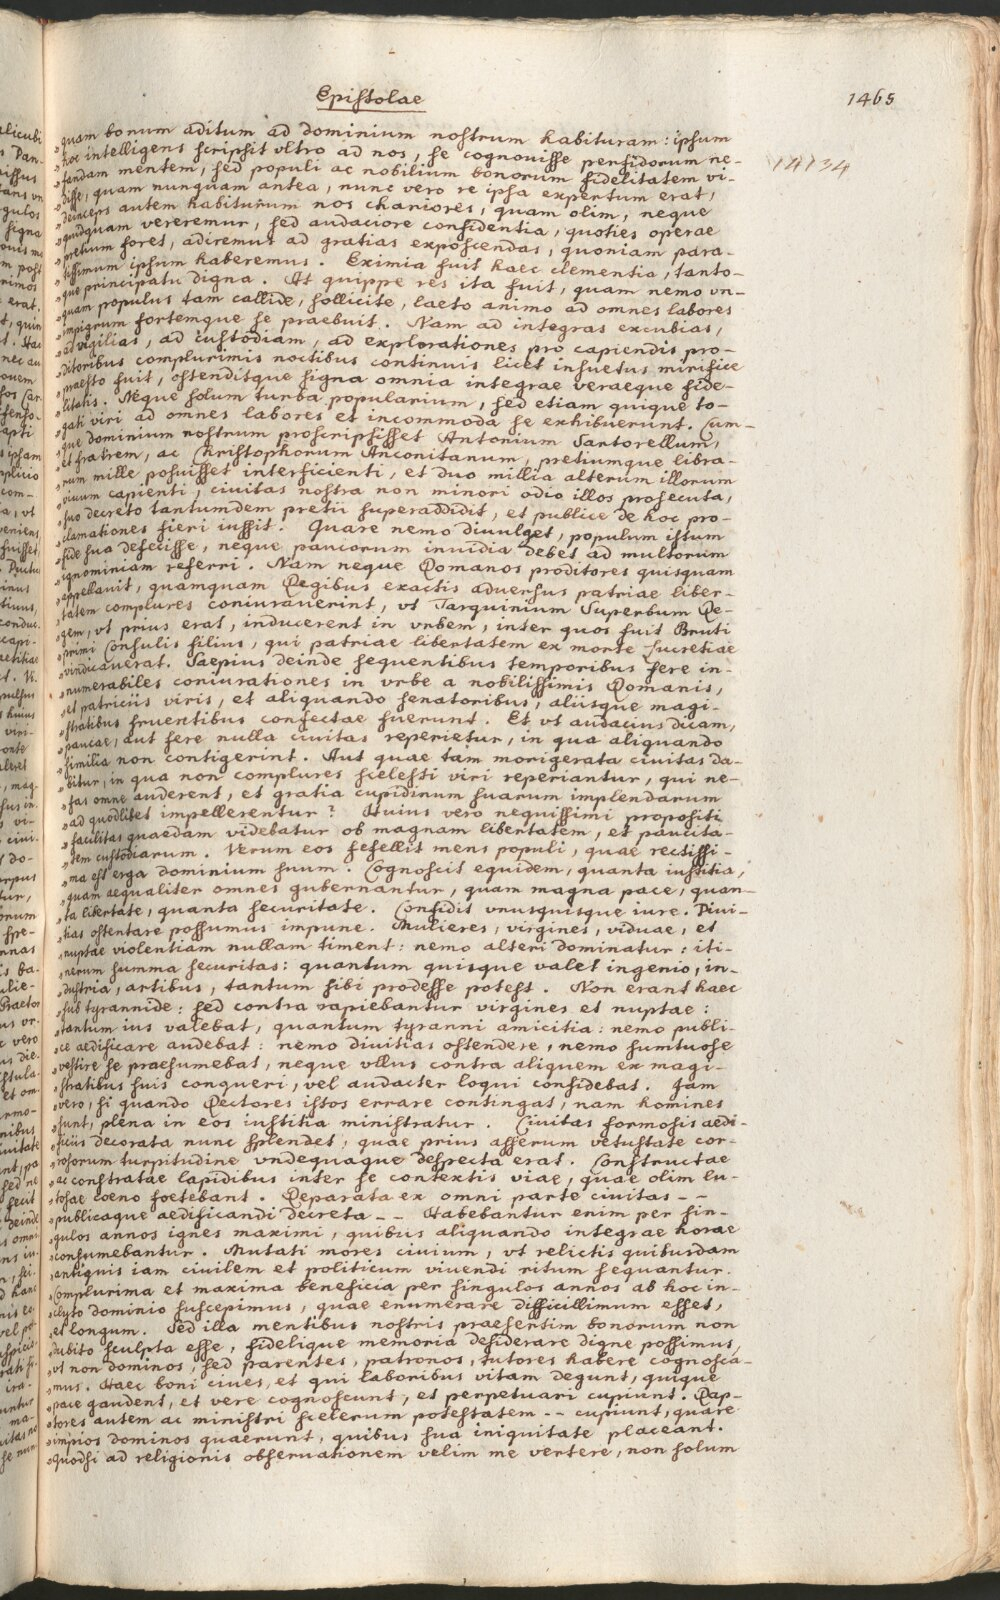 Epistolae
1465
14134
„quam bonum aditum ad dominium nostrum habituram: ipsum
„hoc intelligens scripsit vltro ad nos, se cognouisse perfidorum ne-
„fandam mentem, sed populi ac nobilium bonorum fidelitatem vi-
„disse, quam nunquam antea, nunc vero re ipsa expertum erat,
„deinceps autem habiturum nos chariores, quam olim, neque
„quidquam vereremur, sed audaciore confidentia, quoties operae
„pretium foret, adiremus ad gratias exposcendas, quoniam para-
„tissimum ipsum haberemus. Eximia fuit haec clementia, tanto-
„que principatu digna. At quippe res ita fuit, quam nemo vn-
„quam populus tam callide, sollicite, laeto animo ad omnes labores
„impigrum fortemque se praebuit. Nam ad integras excubias,
„ad vigilias, ad custodiam, ad explorationes pro capiendis pro-
„ditoribus complurimis noctibus continuis licet insuetus mirifice
„praesto fuit, ostenditque signa omnia integrae veraeque fide-
„litatis. Neque solum turba popularium, sed etiam quique to-
„gati viri ad omnes labores et incommoda se exhibuerunt. Cum-
„que dominium nostrum proscripsisset Antonium Santorellum,
„et fratrem, ac Christophorum Anconitanum, pretiumque libra-
„rum mille posuisset interficienti, et duo millia alterum illorum
„viuum capienti, ciuitas nostra non minori odio illos prosecuta,
„suo decreto tantumdem pretii superaddidit, et publice de hoc pro-
„clamationes fieri iussit. Quare nemo diuulget, populum istum
„fide sua defecisse, neque paucorum inuidia debet ad multorum
„ignominiam referri. Nam neque Romanos proditores quisquam
„appellauit, quamquam Regibus exactis aduersus patriae liber-
„tatem complures coniurauerint, vt Tarquinium Superbum Re-
„gem, vt prius erat, inducerent in vrbem, inter quos fuit Bruti
„primi Consulis filius, qui patriae libertatem ex morte Lucretiae
„vindicauerat. Saepius deinde sequentibus temporibus fere in-
„numerabiles coniurationes in vrbe a nobilissimis Romanis,
„et patriciis viris, et aliquando senatoribus, aliisque magi-
„stratibus fruentibus confectae fuerunt. Et vt audacius dicam,
„paucae, aut fere nulla ciuitas reperietur, in qua aliquando
„similia non contigerint. Aut quae tam morigerata ciuitas da-
„bitur, in qua non complures scelesti viri reperiantur, qui ne-
„fas omne auderent, et gratia cupidinum suarum implendarum
„ad quodlibet impellerentur? Huius vero nequissimi propositi
„facilitas quaedam videbatur ob magnam libertatem, et paucita-
„tem custodiarum. Verum eos fefellit mens populi, quae rectissi-
„ma est erga dominium suum. Cognoscit equidem, quanta iustitia,
„quam aequaliter omnes gubernantur, quam magna pace, quan-
„ta libertate, quanta securitate. Confidit vnusquisque iure. Diui-
„tias ostentare possumus impune. Mulieres, virgines, viduae, et
„nuptae violentiam nullam timent: nemo alteri dominatur: iti-
„nerum summa securitas: quantum quisque valet ingenio, in-
„dustria, artibus, tantum sibi prodesse potest. Non erant haec
„sub tyrannide: sed contra rapiebantur virgines et nuptae:
„tantum ius valebat, quantum tyranni amicitia: nemo publi-
„ce aedificare audebat: nemo diuitias ostendere, nemo sumtuose
„vestire se praesumebat, neque vllus contra aliquem ex magi-
„stratibus suis conqueri, vel audacter loqui confidebat. Jam
„vero, si quando Rectores istos errare contingat, nam homines
„sunt, plena in eos iustitia ministratur. Ciuitas formosis aedi-
„ficiis decorata nunc splendet, quae prius asserum vetustate cor-
„rosorum turpitudine vndequaque despecta erat. Constructae
„ac constratae lapidibus inter se contextis viae, quae olim lu-
„tosae coeno foetebant. Reparata ex omni parte ciuitas - -
„publicaque aedificandi decreta - - Habebantur enim per sin-
„gulos annos ignes maximi, quibus aliquando integrae horae
„consumebantur. Mutati mores ciuium, vt relictis quibusdam
„antiquis iam ciuilem et politicum viuendi ritum sequantur.
„Complurima et maxima beneficia per singulos annos ab hoc in-
„clyto dominio suscepimus, quae enumerare difficillimum esset,
„et longum. Sed illa mentibus nostris praesertim bonorum non
„dubito sculpta esse, fidelique memoria desiderare digne possimus,
„vt non dominos, sed parentes, patronos, tutores habere cognosca-
„mus. Haec boni ciues, et qui laboribus vitam degunt, quique
„pace gaudent, et vere cognoscunt, et perpetuari cupiunt. Rap-
„tores autem ac ministri scelerum potestatem - - cupiunt, quare
„impios dominos quaerunt, quibus sua iniquitate placeant.
„Quodsi ad religionis obseruationem velim me vertere, non solum